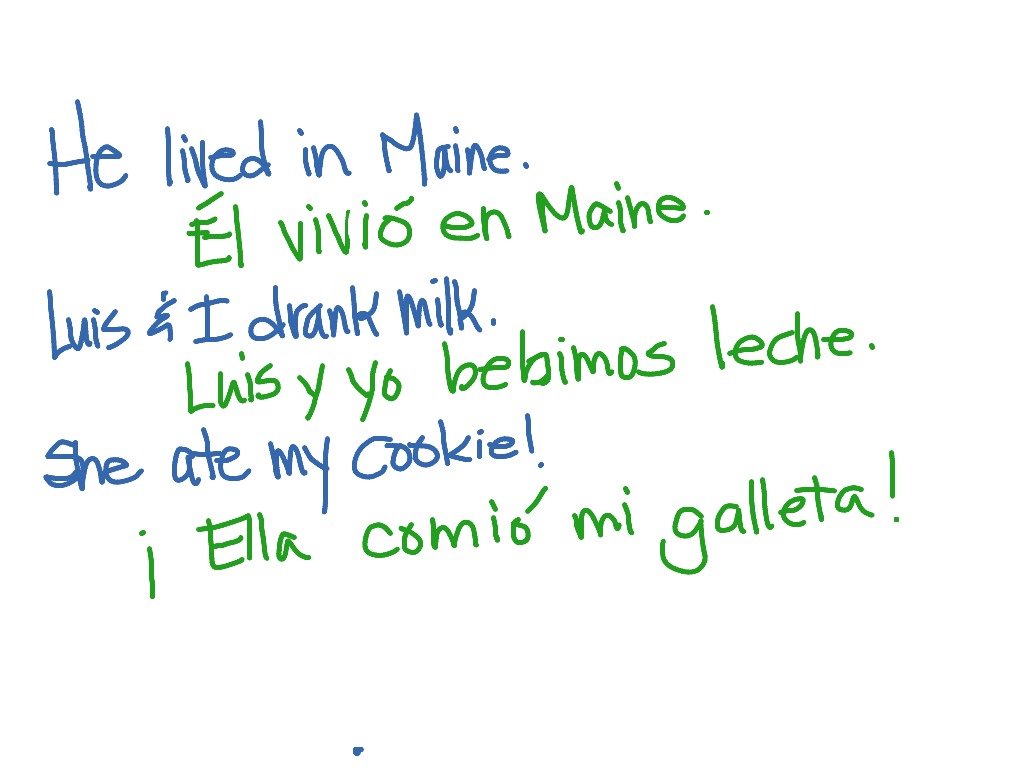 He lived in Maine.
Él vivió en Maine.
Luis & I drank milk.
Luis y yo bebimos leche.
She ate my cookie!
¡Ella comió mi galleta!